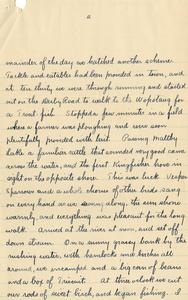 2
mainder of the day we hatched another scheme.
Tackle and eatables had been provided in town, and
at ten thirty we were through running and started
out on the Derby Road to walk to the Wopolong for
a trout fish. Stopped a few minutes in a field
where a farmer was ploughing and were soon
plentifully provided with bait. Passing Maltby
Lake a familiar rattle that sounded very good came
across the water, and the first Kingfisher hove in
sight on the opposite shore. This was luck. Vesper
Sparrow and a whole chorus of other birds sang
on every hand as we swung along, the sun shone
warmly, and everything was pleasant for the long
walk. Arrived at the river at noon, and set off
down stream. On a sunny grassy bank by the
rushing water, with hemlocks and birches all
around, we encamped and a big can of beans
and a box of Triscuit. At three o'clock we cut
our rods of sweet birch, and began fishing. I